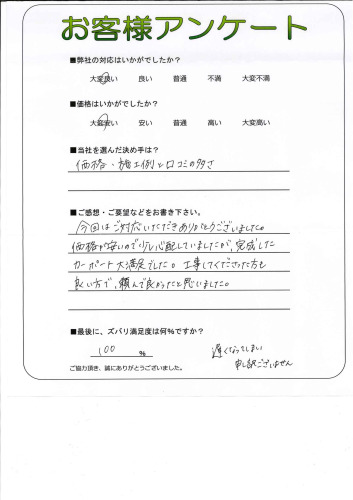 お客様アンケート
■弊社の対応はいかがでしたか?
大変良い 良い 普通 不満 大変不満
■価格はいかがでしたか?
大変安い 安い 普通 高い 大変高い
■当社を選んだ決め手は?
価格・施工例と口コミの多さ
■ご感想・ご要望などをお書き下さい。
今回はご対応いただきありがとうございました。
価格が安いので少し心配していましたが、完成した
カーポート大満足でした。工事してくださった方も
良い方で、頼んで良かったと思いました。
■最後に、ズバリ満足度は何%ですか?
100 %
遅くなってしまい
申し訳ございません
ご協力頂き、誠にありがとうございました。